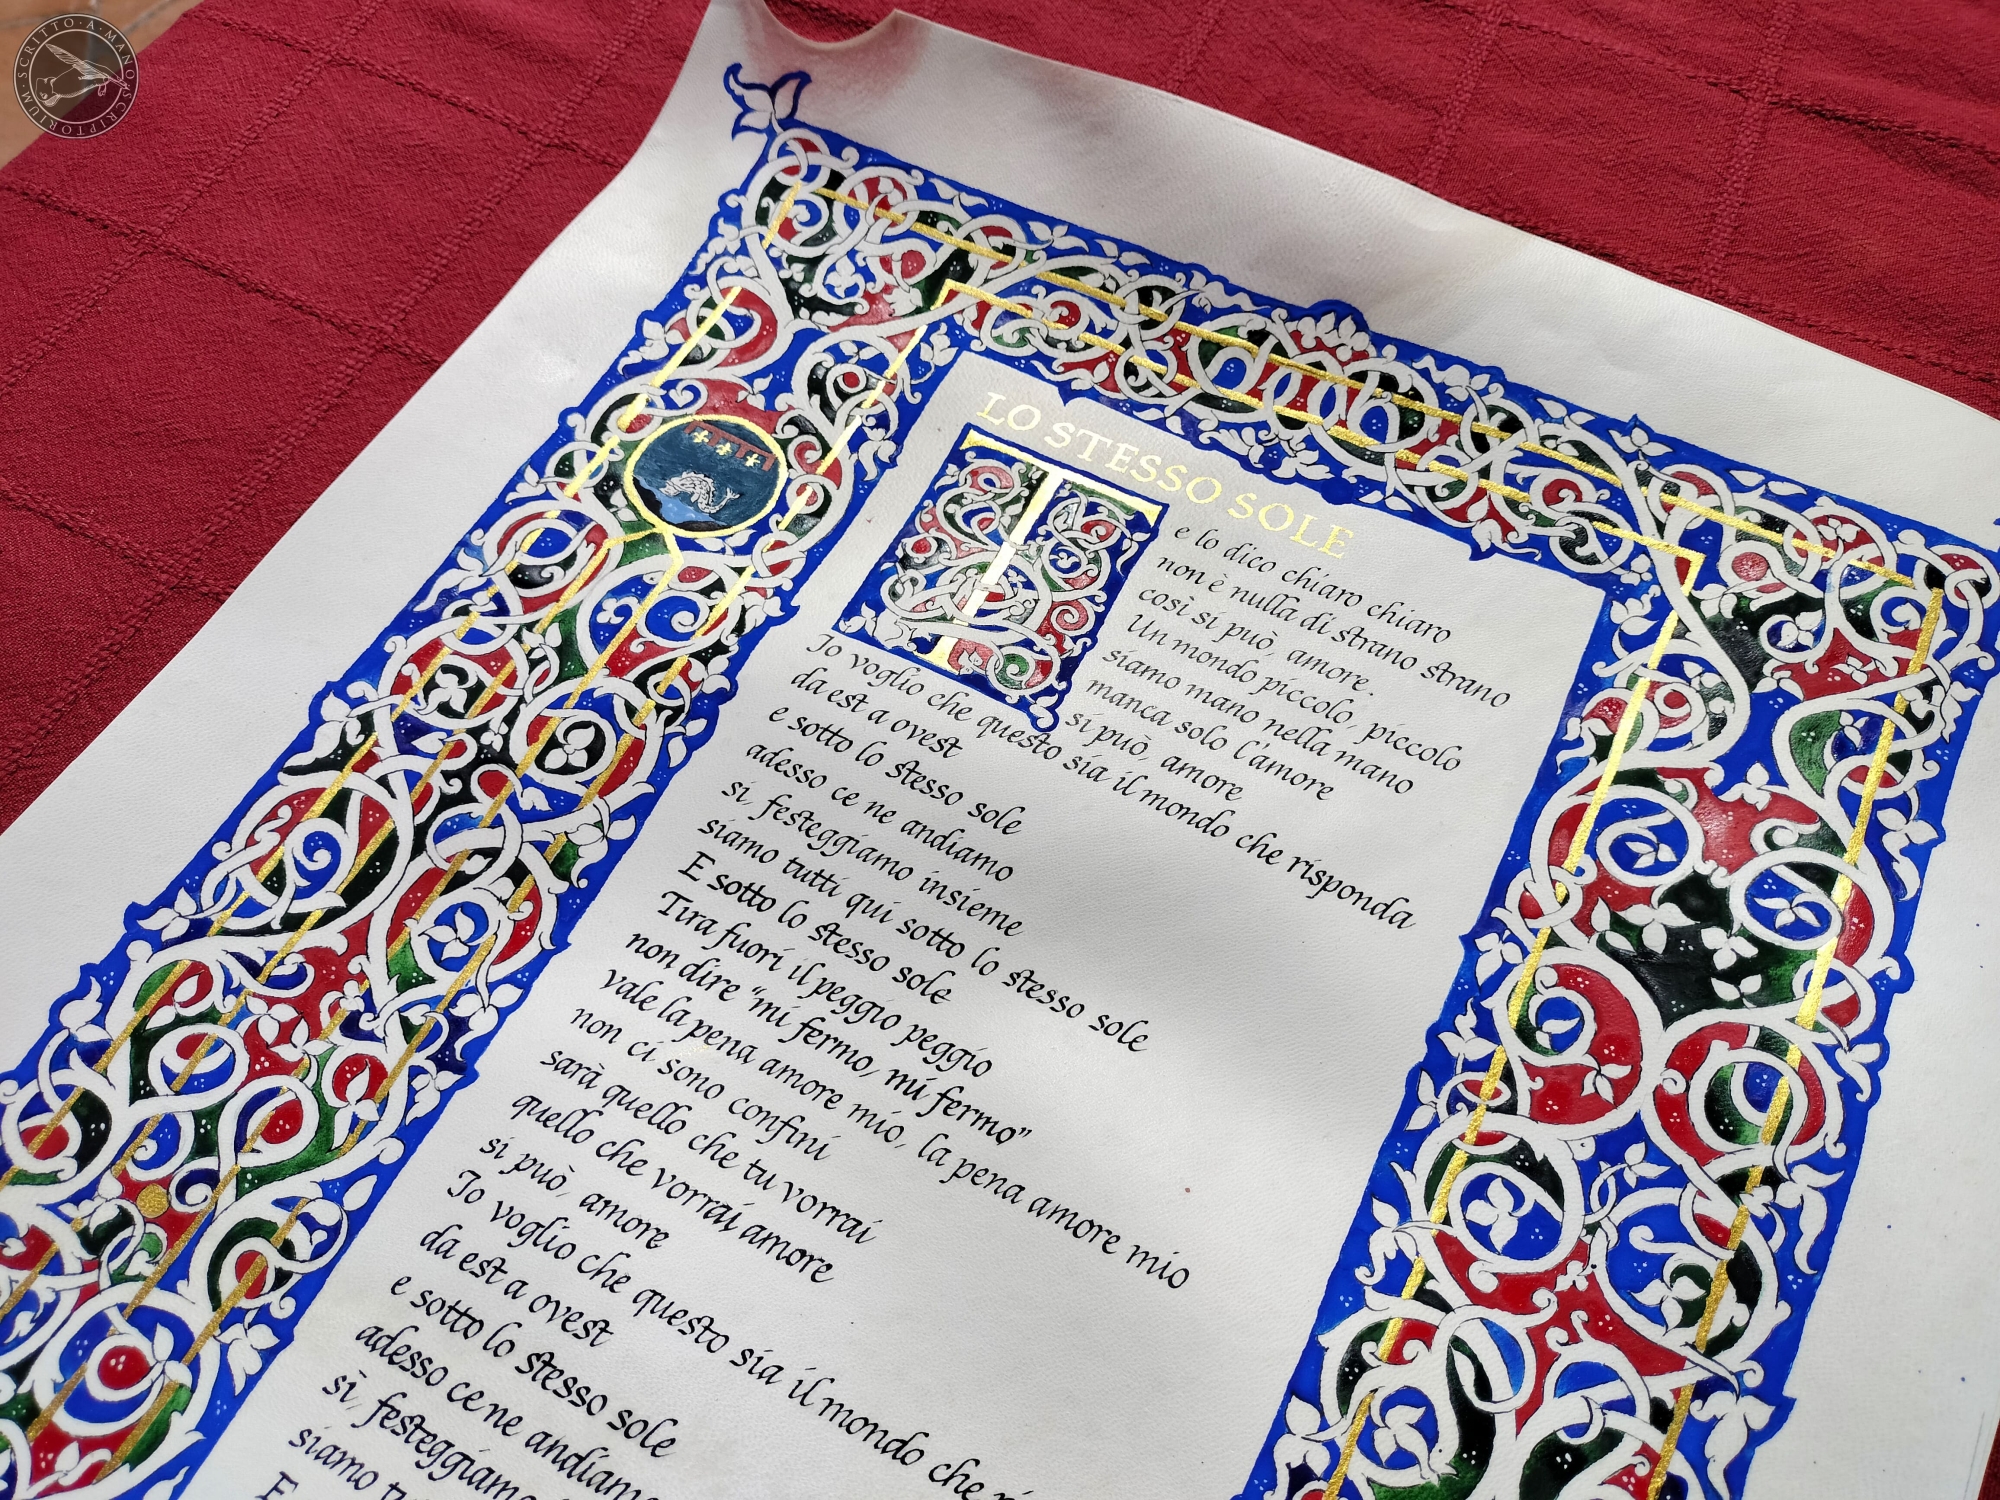 SCRITTO·A·MANO·SCRIPTORIUM·
LO STESSO SOLE
Te lo dico chiaro chiaro
non è nulla di strano strano
così si può, amore.
Un mondo piccolo, piccolo
siamo mano nella mano
manca solo l'amore
si può, amore
Io voglio che questo sia il mondo che risponda
da est a ovest
e sotto lo stesso sole
adesso ce ne andiamo
sì, festeggiamo insieme
siamo tutti qui sotto lo stesso sole
E sotto lo stesso sole
Tira fuori il peggio peggio
non dire "mi fermo, mi fermo"
vale la pena amore mio, la pena amore mio
non ci sono confini
sarà quello che tu vorrai
quello che vorrai amore
si può, amore
Io voglio che questo sia il mondo che
da est a ovest
e sotto lo stesso sole
adesso ce ne andiamo
sì, festeggiamo
siamo
E